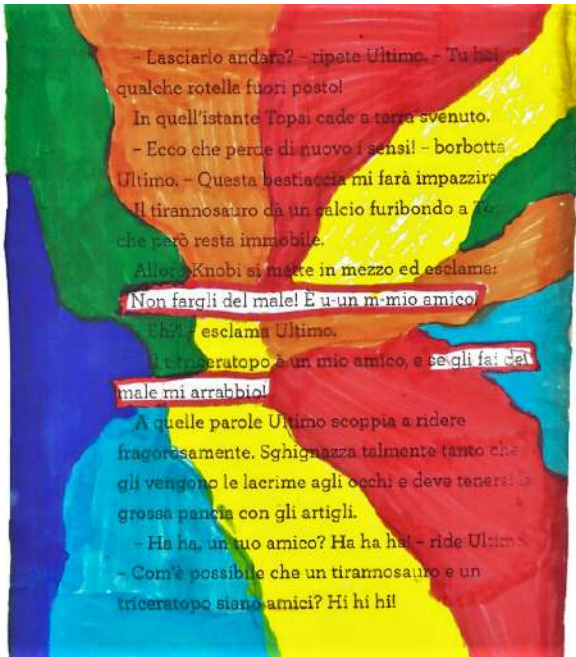 - Lasciarlo andare? - ripete Ultimo. - Tu hai
qualche rotella fuori posto!
In quell'istante Topsi cade a terra svenuto.
- Ecco che perde di nuovo i sensi! - borbotta
Ultimo. - Questa bestiaccia mi farà impazzire
Il tirannosauro dà un calcio furibondo a
che però resta immobile.
Allora Knobi si mette in mezzo ed esclama:
Non fargli del male! È u-un m-mio amico
- Eh?! - esclama Ultimo.
Il t-triceratopo è un mio amico, e se gli fai del
male mi arrabbio!
A quelle parole Ultimo scoppia a ridere
fragorosamente. Sghignazza talmente tanto che
gli vengono le lacrime agli occhi e deve tenersi la
grossa pancia con gli artigli.
- Ha ha, un tuo amico? Ha ha ha! - ride Ultimo.
- Com'è possibile che un tirannosauro e un
triceratopo siano amici? Hi hi hi!